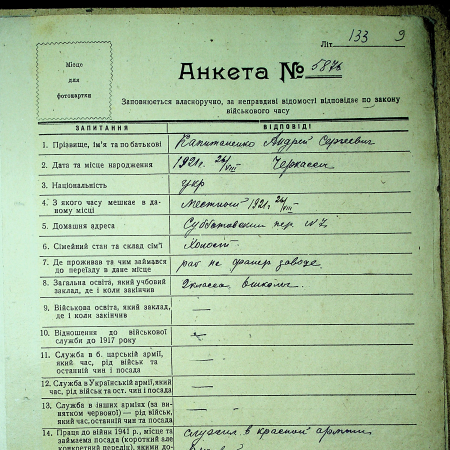 Літ. 133 9
Місце
для
фотокартки
Анкета № 5876
Заповнюється власноручно, за неправдиві відомості відповідає по закону
військового часу
ЗАПИТАННЯ ВІДПОВІДІ
1. Прізвище, ім'я та по батькові Капитаненко Андрей Сергеевич
2. Дата та місце народження 1921 г. 26/VIII Черкассы
3. Національність укр
4. З якого часу мешкає в даному місці Местный 1921 г. 26/VIII
5. Домашня адреса Субботовский пер. №
6. Сімейний стан та склад сім'ї Холост
7. Де проживав та чим займався
до переїзду в дане місце раб на фанер заводе
8. Загальна освіта, який учбовий
заклад, де і коли закінчив 2 класса школы
9. Військова освіта, який заклад,
де і коли закінчив —
10. Відношення до військової
служби до 1917 року —
11. Служба в б. царській армії,
який час, рід військ та
останній чин і посада —
12. Служба в Українській армії, який
час, рід військ та ост. чин і посада —
13. Служба в інших арміях (за ви-
нятком червоної) — рід військ,
який час, останній чин та посада —
14. Праця до війни 1941 р., місце та
займаєма посада (короткий але
конкретний передік), якими до- служил в красной армии